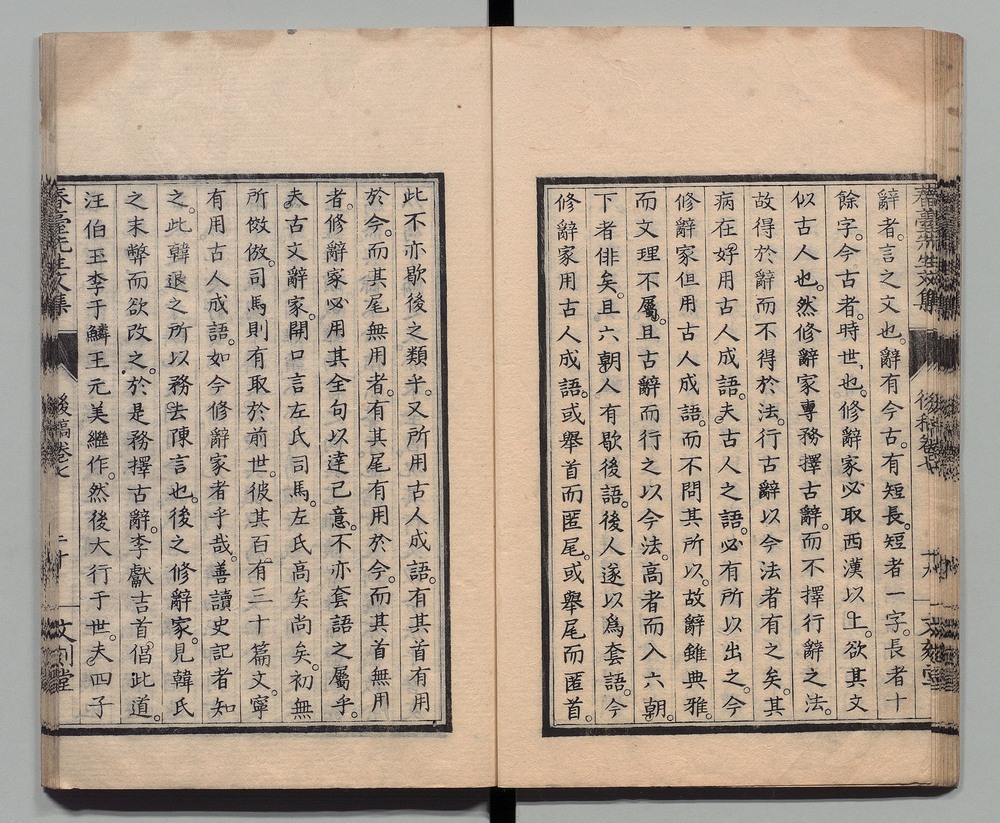 辭者。言之文也。辭有今古。有短長。短者一字。長者十
餘字。今古者。時世也。修辭家必取西漢以上。欲其文
似古人也。然修辭家專務擇古辭。而不擇行辭之法。
故得於辭而不得於法。行古辭以今法者有之矣。其
病在好用古人成語。夫古人之語。必有所以出之。今
修辭家但用古人成語。而不問其所以。故辭雖典雅。
而文理不屬。且古辭而行之以今法。高者而入六朝。
下者俳矣。且六朝人有歇後語。後人遂以爲套語。今
修辭家用古人成語。或舉首而匿尾。或舉尾而匿首。
此不亦歇後之類乎。又所用古人成語。有其首有用
於今。而其尾無用者。有其尾有用於今。而其首無用
者。修辭家必用其全句以達己意。不亦套語之屬乎。
夫古文辭家。開口言左氏司馬。左氏高矣尚矣。初無
所傚倣。司馬則有取於前世。彼其百有三十篇文。寧
有用古人成語。如今修辭家者乎哉。善讀史記者知
之。此韓退之所以務去陳言也。後之修辭家。見韓氏
之末弊而欲改之。於是務擇古辭。李獻吉首倡此道。
汪伯玉李于鱗王元美繼作。然後大行于世。夫四子
春臺先生文集
後稿卷七